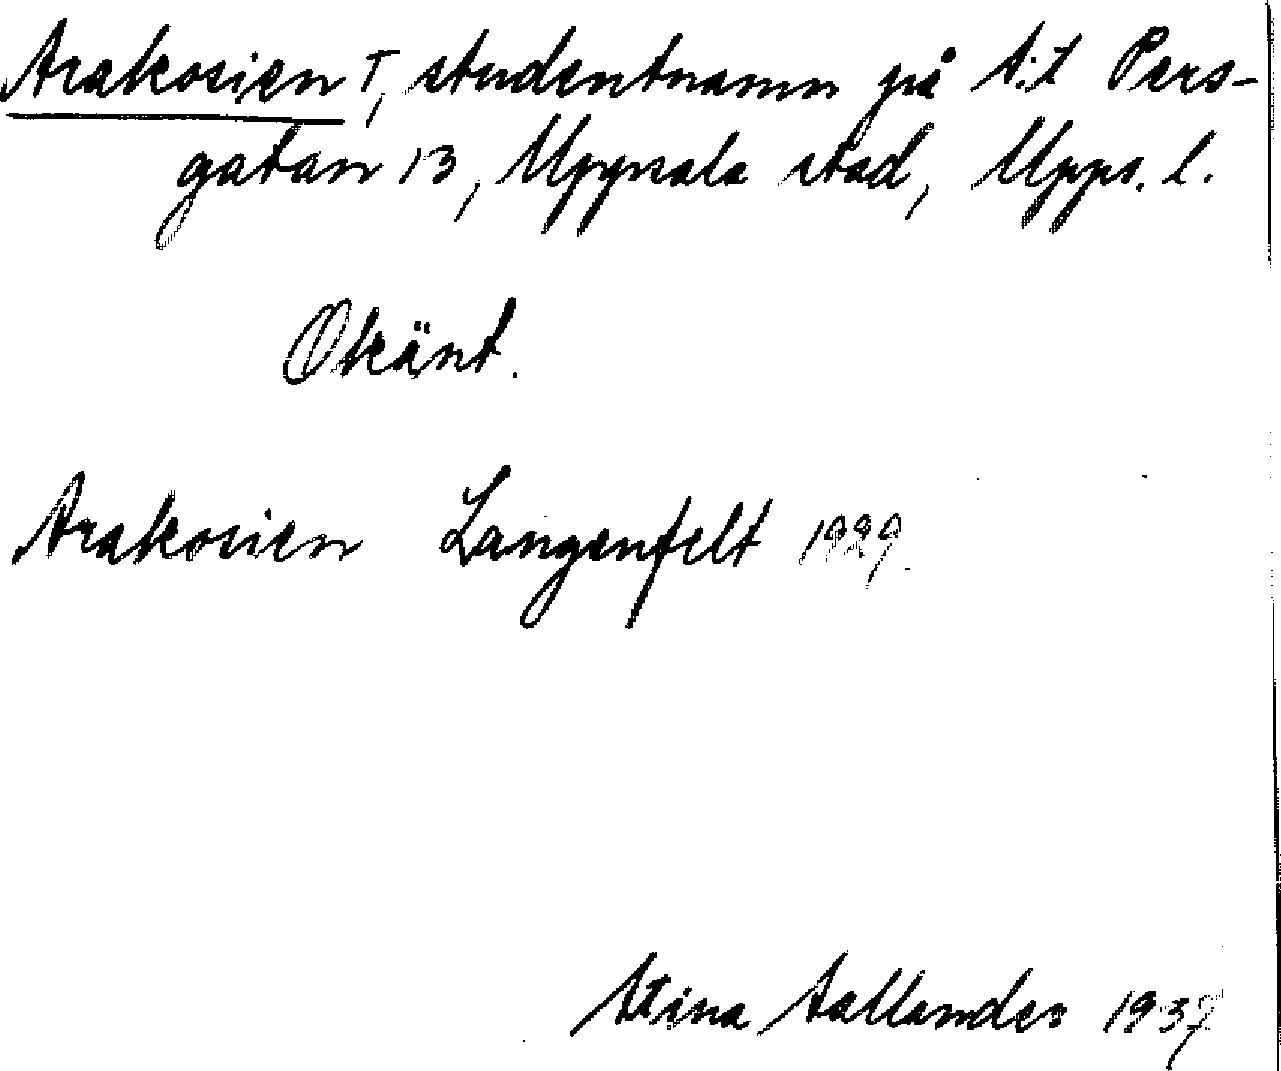 Arakosien †, studentnamn på S:t Pers-
gatan 13, Uppsala stad, Upps. l.
Okänt.
Arakosien Langenfelt 1929.
Stina Sallander 1937